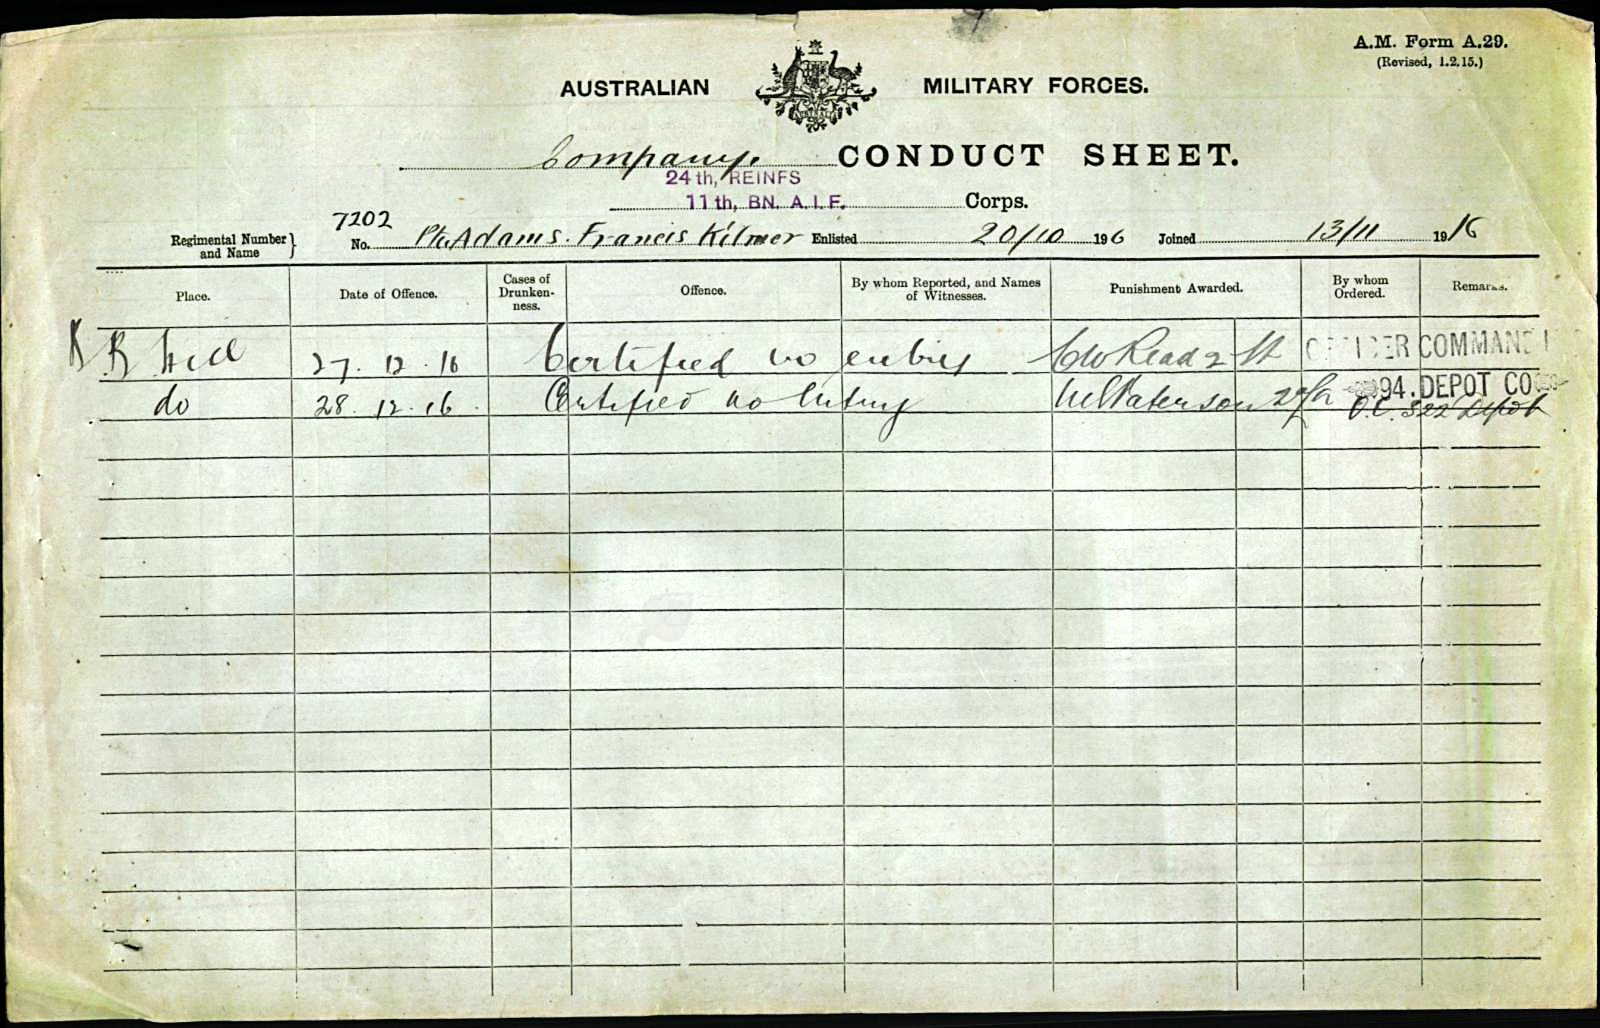 A.M. Form A.29.
(Revised, 1.2.15.)
AUSTRALIAN MILITARY FORCES.
Company. CONDUCT SHEET.
24th, REINFS
11th, BN. A. I. F. Corps.
Regimental Number and Name } No. 7202 Pte Adams. Francis Kilmer Enlisted 20/10 1916 Joined 13/11 1916
Place. Date of Offence. Cases of Drunken-ness. Offence. By whom Reported, and Names of Witnesses. Punishment Awarded. By whom Ordered. Remarks.
B Hill 27. 12. 16 Certified no entry Read 2 Lt OFFICER COMMANDI
do 28. 12. 16. Certified no Entry Paterson 94. DEPOT CO
O.C. 322 Depot